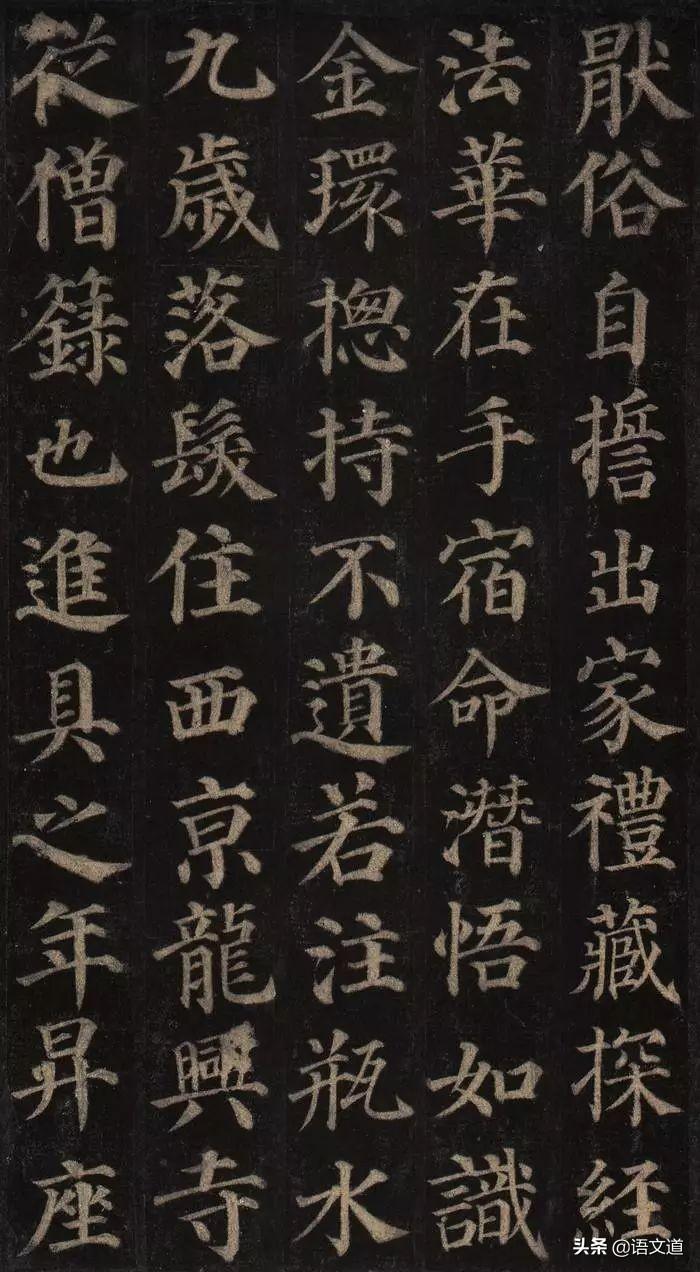 猒俗自誓出家禮藏探經
法華在手宿命潛悟如識
金環揔持不遺若注瓶水
九歲落髮住西京龍興寺
從僧籙也進具之年昇座
头条 @语文道